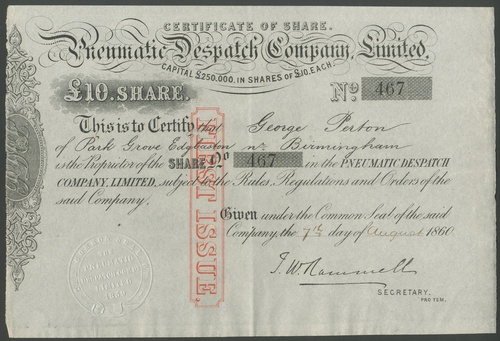 CERTIFICATE OF SHARE.
Pneumatic Despatch Company, Limited.
CAPITAL £250,000, IN SHARES OF £10, EACH.
£10. SHARE.
No. 467
This is to Certify that George Perton
of Park Grove Edgbaston nr. Birmingham
is the Proprietor of the SHARE No 467 in the PNEUMATIC DESPATCH
COMPANY, LIMITED, subject to the Rules, Regulations and Orders of the
said Company.
FIRST ISSUE.
Given under the Common Seal of the said
Company, the 7th day of August 1860
J. W. Rammell
SECRETARY.
PRO TEM.